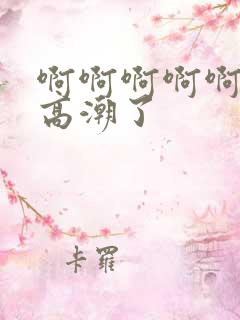 啊啊啊啊啊
高潮了
卡羅